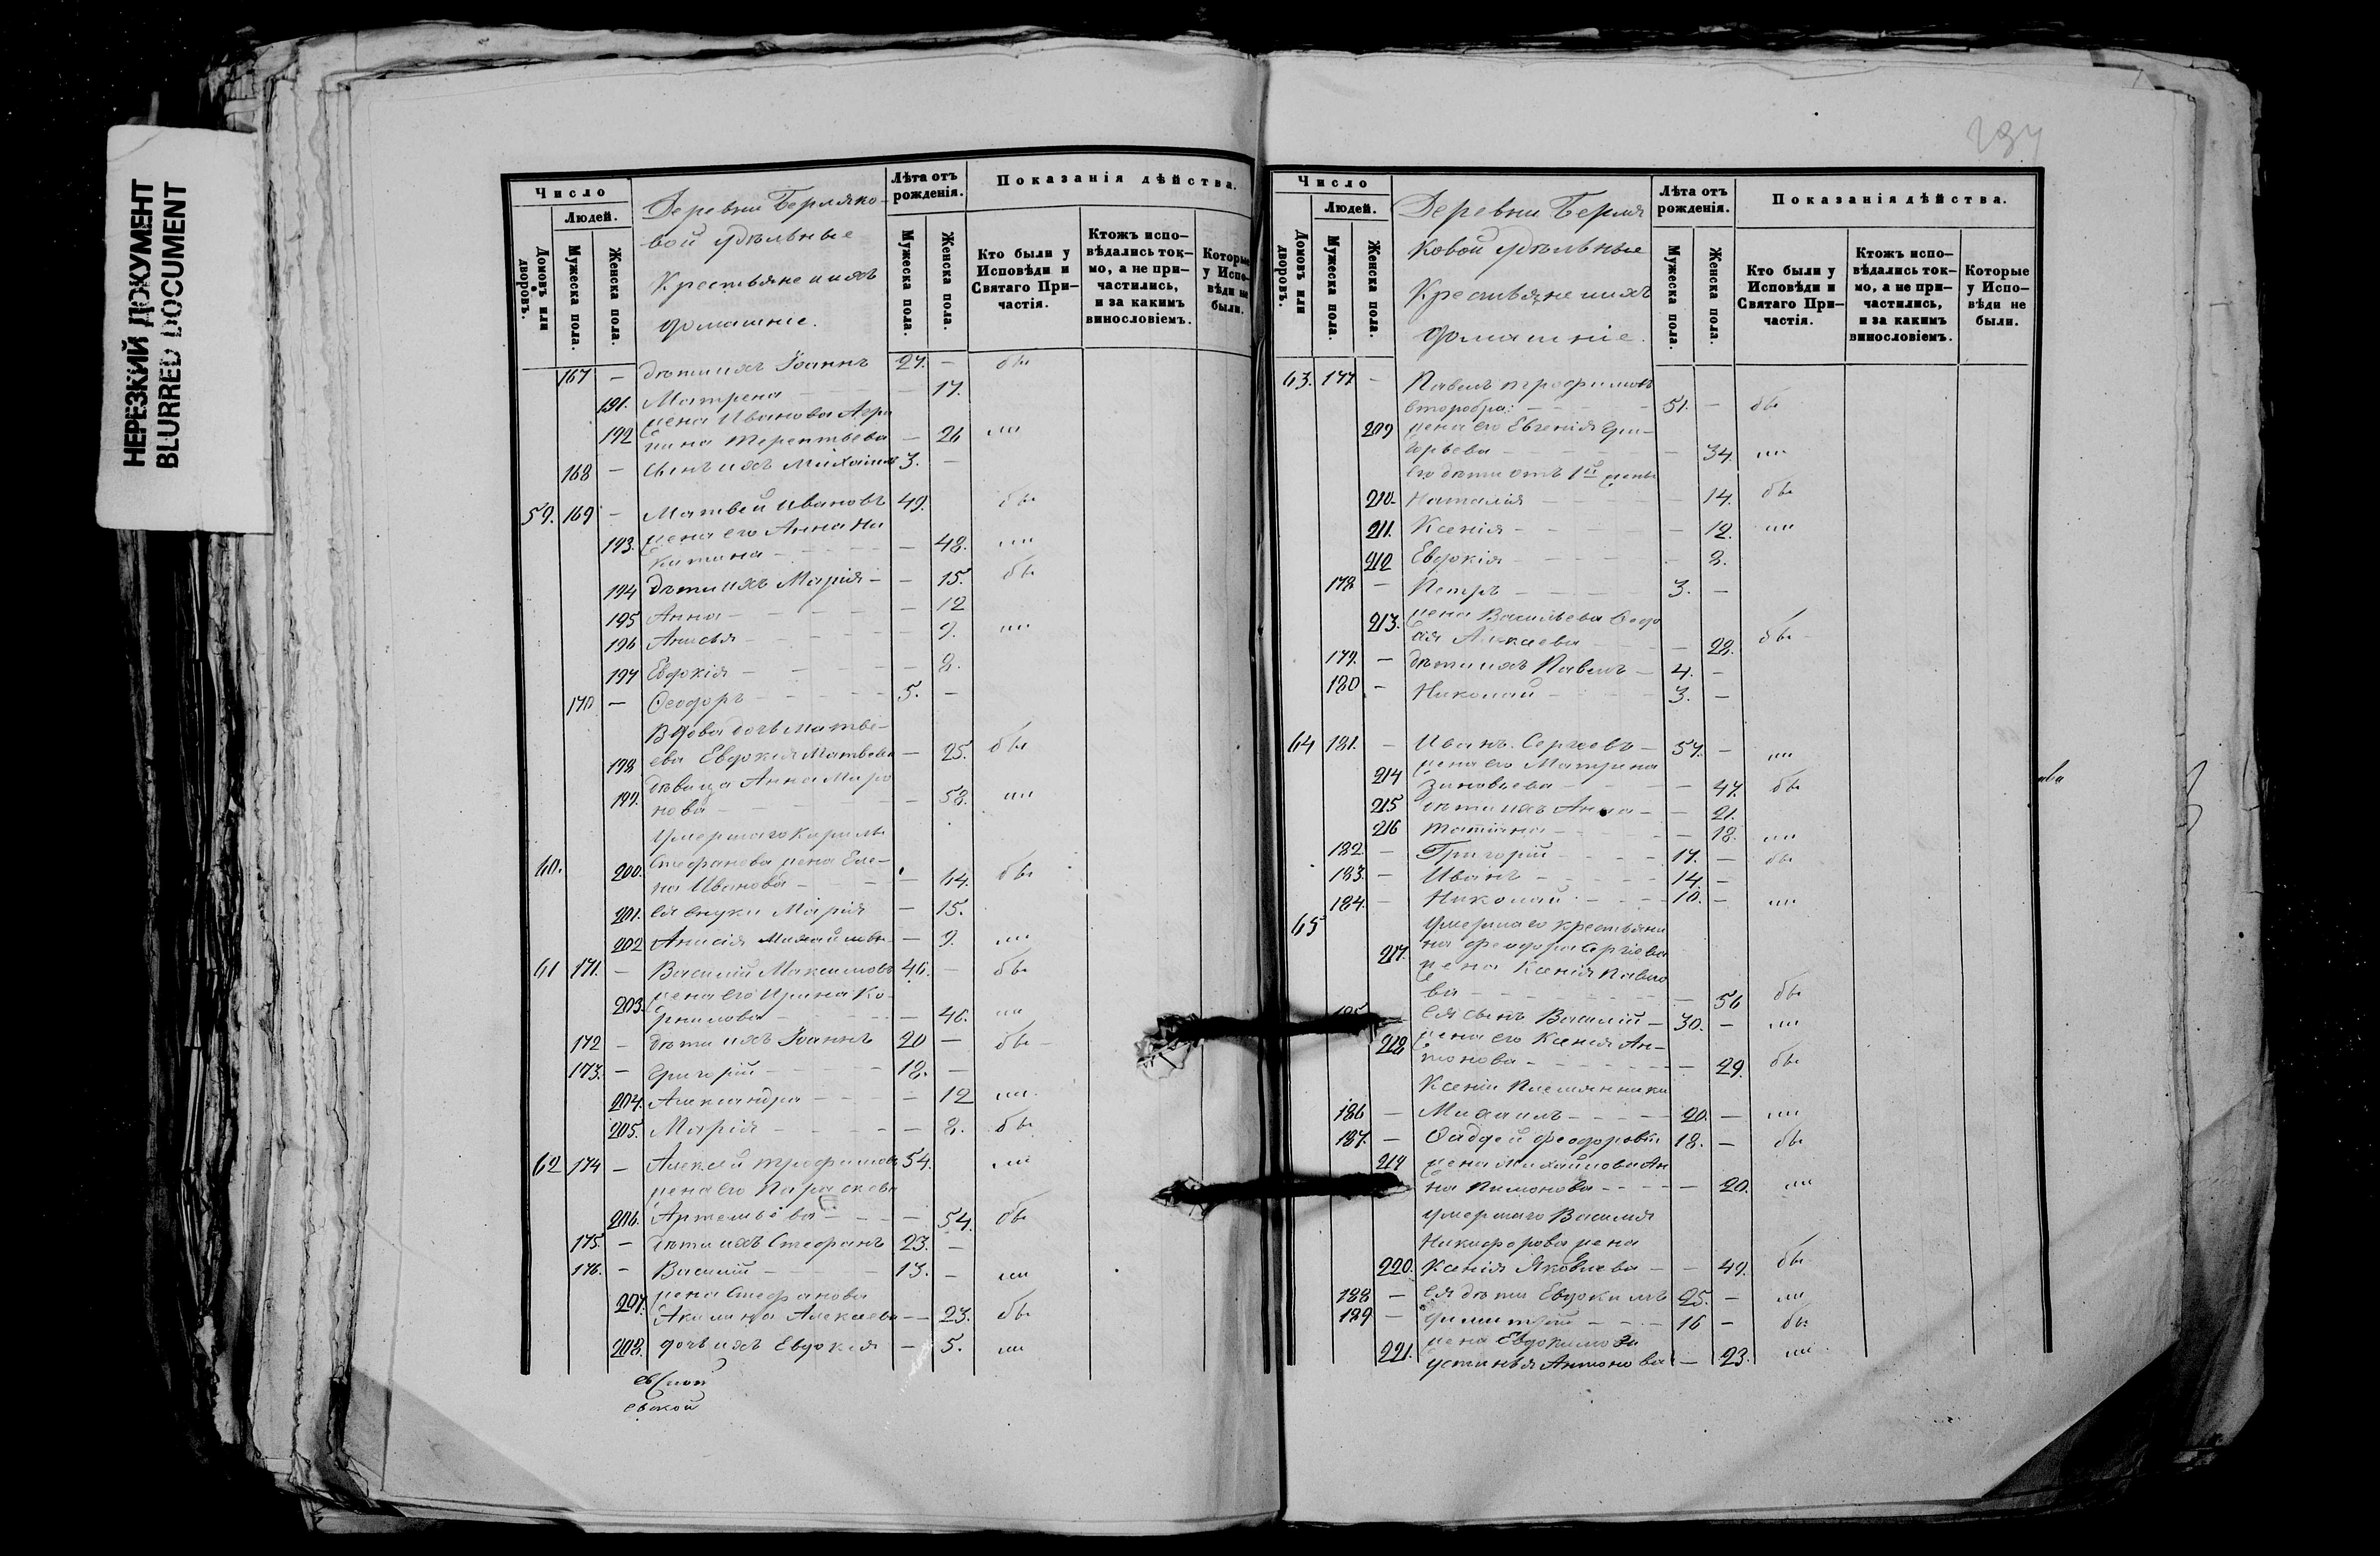 НЕРЕЗКИЙ ДОКУМЕНТ
BLURRED DOCUMENT
Число
Людей.
Домовъ или дворовъ.
Мужеска пола.
Женска пола.
Деревни Берляко-
вой удѣльные
Крестьяне и ихъ
домашніе.
Лѣта отъ рожденія.
Мужеска пола.
Женска пола.
Показанія дѣйства.
Кто были у Исповѣди и Святаго Причастія.
Ктожъ исповѣдались токмо, а не причастились, и за какимъ винословіемъ.
Которые у Исповѣди не были.
167 — дѣти ихъ Іоаннъ 27. — бы
191. Матрена — 17.
жена Иванова Агри
192 пина Терентьева — 26
168 — сынъ ихъ Михаилъ 3. —
59. 169 — Матвей Ивановъ 49. бы
193. жена его Анна Ни
китина — 48.
194 дѣти ихъ Марія — 15. бы
195 Анна — 12
196 Анисья — 9.
197 Евдокія — 8.
170 — Ѳеодоръ 5. —
Вдова дочь Матве-
198 ева Евдокія Матвеева — 25. бы
199. дѣвица Анна Миро
нова — 58.
умершаго Кирилы
60. 200. Стефанова жена Еле-
на Иванова — 64. бы
201. ея внуки Марія — 15.
202 Анисія Михайловы — 9.
61 171. — Василій Максимовъ 46. — бы
203. жена его Ирина Ко
рнилова — 46.
172 — дѣти ихъ Іоаннъ 20 — бы
173. — Григорій 18. —
204. Александра — 12
205. Марія — 8. бы
62 174 — Алексѣй Трофимовъ 54.
жена его Параскева
206. Артемьева — 54. бы
175. — дѣти ихъ Стефанъ 23. —
176. — Василій 13. —
207. жена Стефанова
Акилина Алексеева — 23. бы
208. дочь ихъ Евдокія — 5.
Число
Людей.
Домовъ или дворовъ.
Мужеска пола.
Женска пола.
Деревни Берля
ковой удѣльные
Крестьяне и ихъ
домашніе.
Лѣта отъ рожденія.
Мужеска пола.
Женска пола.
Показанія дѣйства.
Кто были у Исповѣди и Святаго Причастія.
Ктожъ исповѣдались токмо, а не причастились, и за какимъ винословіемъ.
Которые у Исповѣди не были.
63. 177 — Павелъ Трофимовъ
51. — бы
209 жена его Евгенія Гри-
горьева — 34.
его дѣти отъ 1й жены
210. Наталія — 14. бы
211. Ксенія — 12.
212 Евдокія — 8.
178 — Петръ 3. —
213. жена Васильева
Алексеева — 28. бы
179. — дѣти ихъ Павелъ 4. —
180 — Николай 3. —
64 181. — Иванъ Сергеевъ 57. —
214 жена его Матрена
Зиновьева — 47. бы
215 дѣти ихъ Анна — 21.
216 Татіана — 18.
182. — Григорій 17. — бы
183. — Иванъ 14. —
184. — Николай 10. —
65 умершаго крестьяни
217. на Феодора Сергіева
жена Ксенія Павло
ва — 56 бы
185 ея сынъ Василій — 30. —
218 жена его Ксенія Ан-
тонова — 29. бы
Ксеніи племянники
186 — Михаилъ 20. —
187. — Фаддей Феодоровы 18. — бы
219 жена Михайлова Ан
на Пимонова — 20.
умершаго Василія
Никифорова жена
220. Ксенія Яковлева — 49. бы
188 — ея дѣти Евдокимъ 25. —
189 — Димитрій 16 — бы
жена Евдокимова
221. Устинья Антонова — 23.